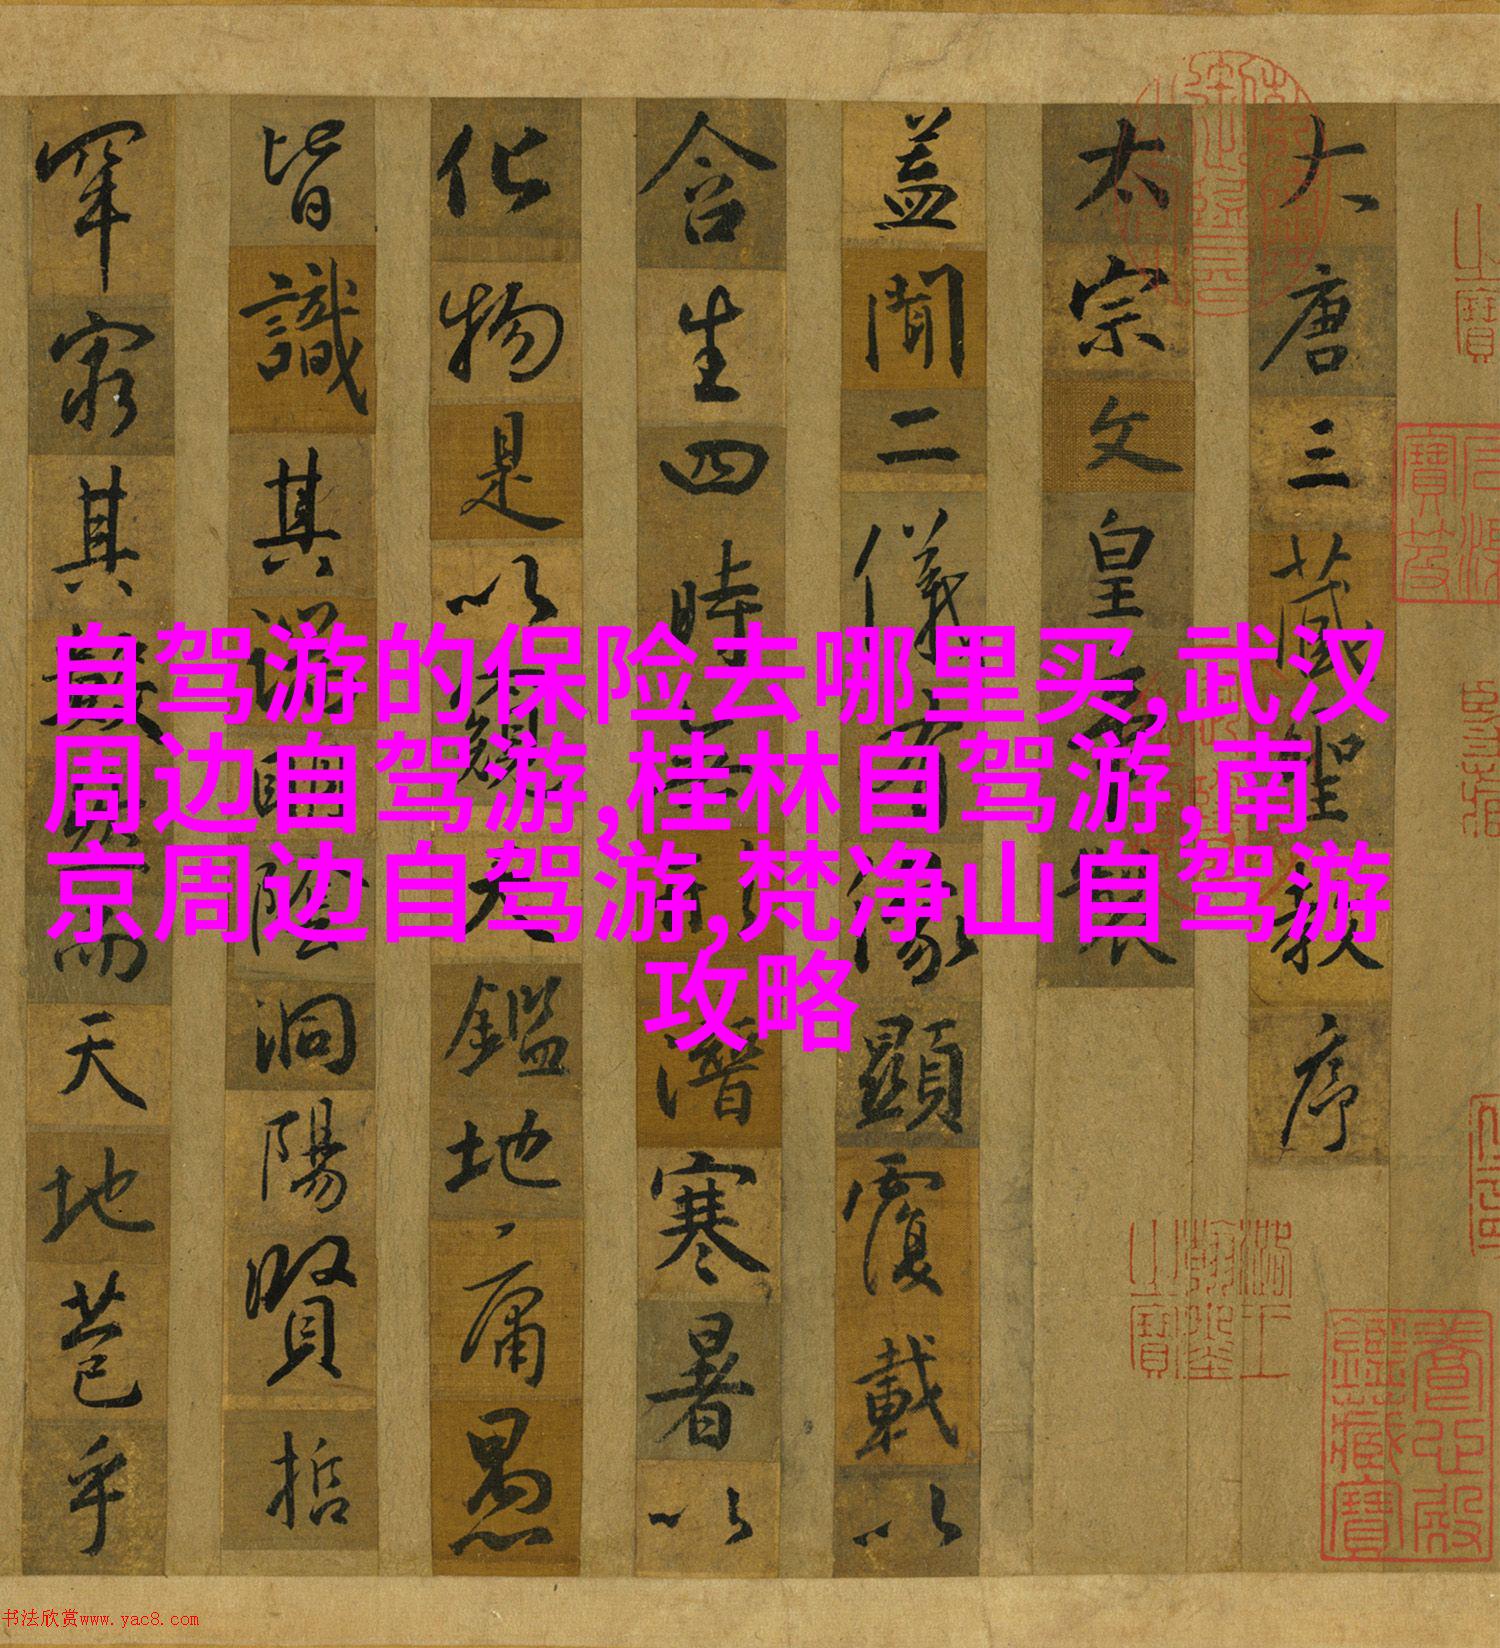 自驾游的保险去哪里买,武汉
周边自驾游,桂林自驾游,南
京周边自驾游,梵净山自驾游
攻略
大唐三藏聖教序
太宗文皇帝製
蓋聞二儀有像顯覆載以
含生四時無形潛寒暑以
化物是以窺天鑑地庸愚
皆識其端明陰洞陽賢哲
罕窮其數然而天地苞乎
養心殿
鑑藏寶
书法欣赏www.yac8.com